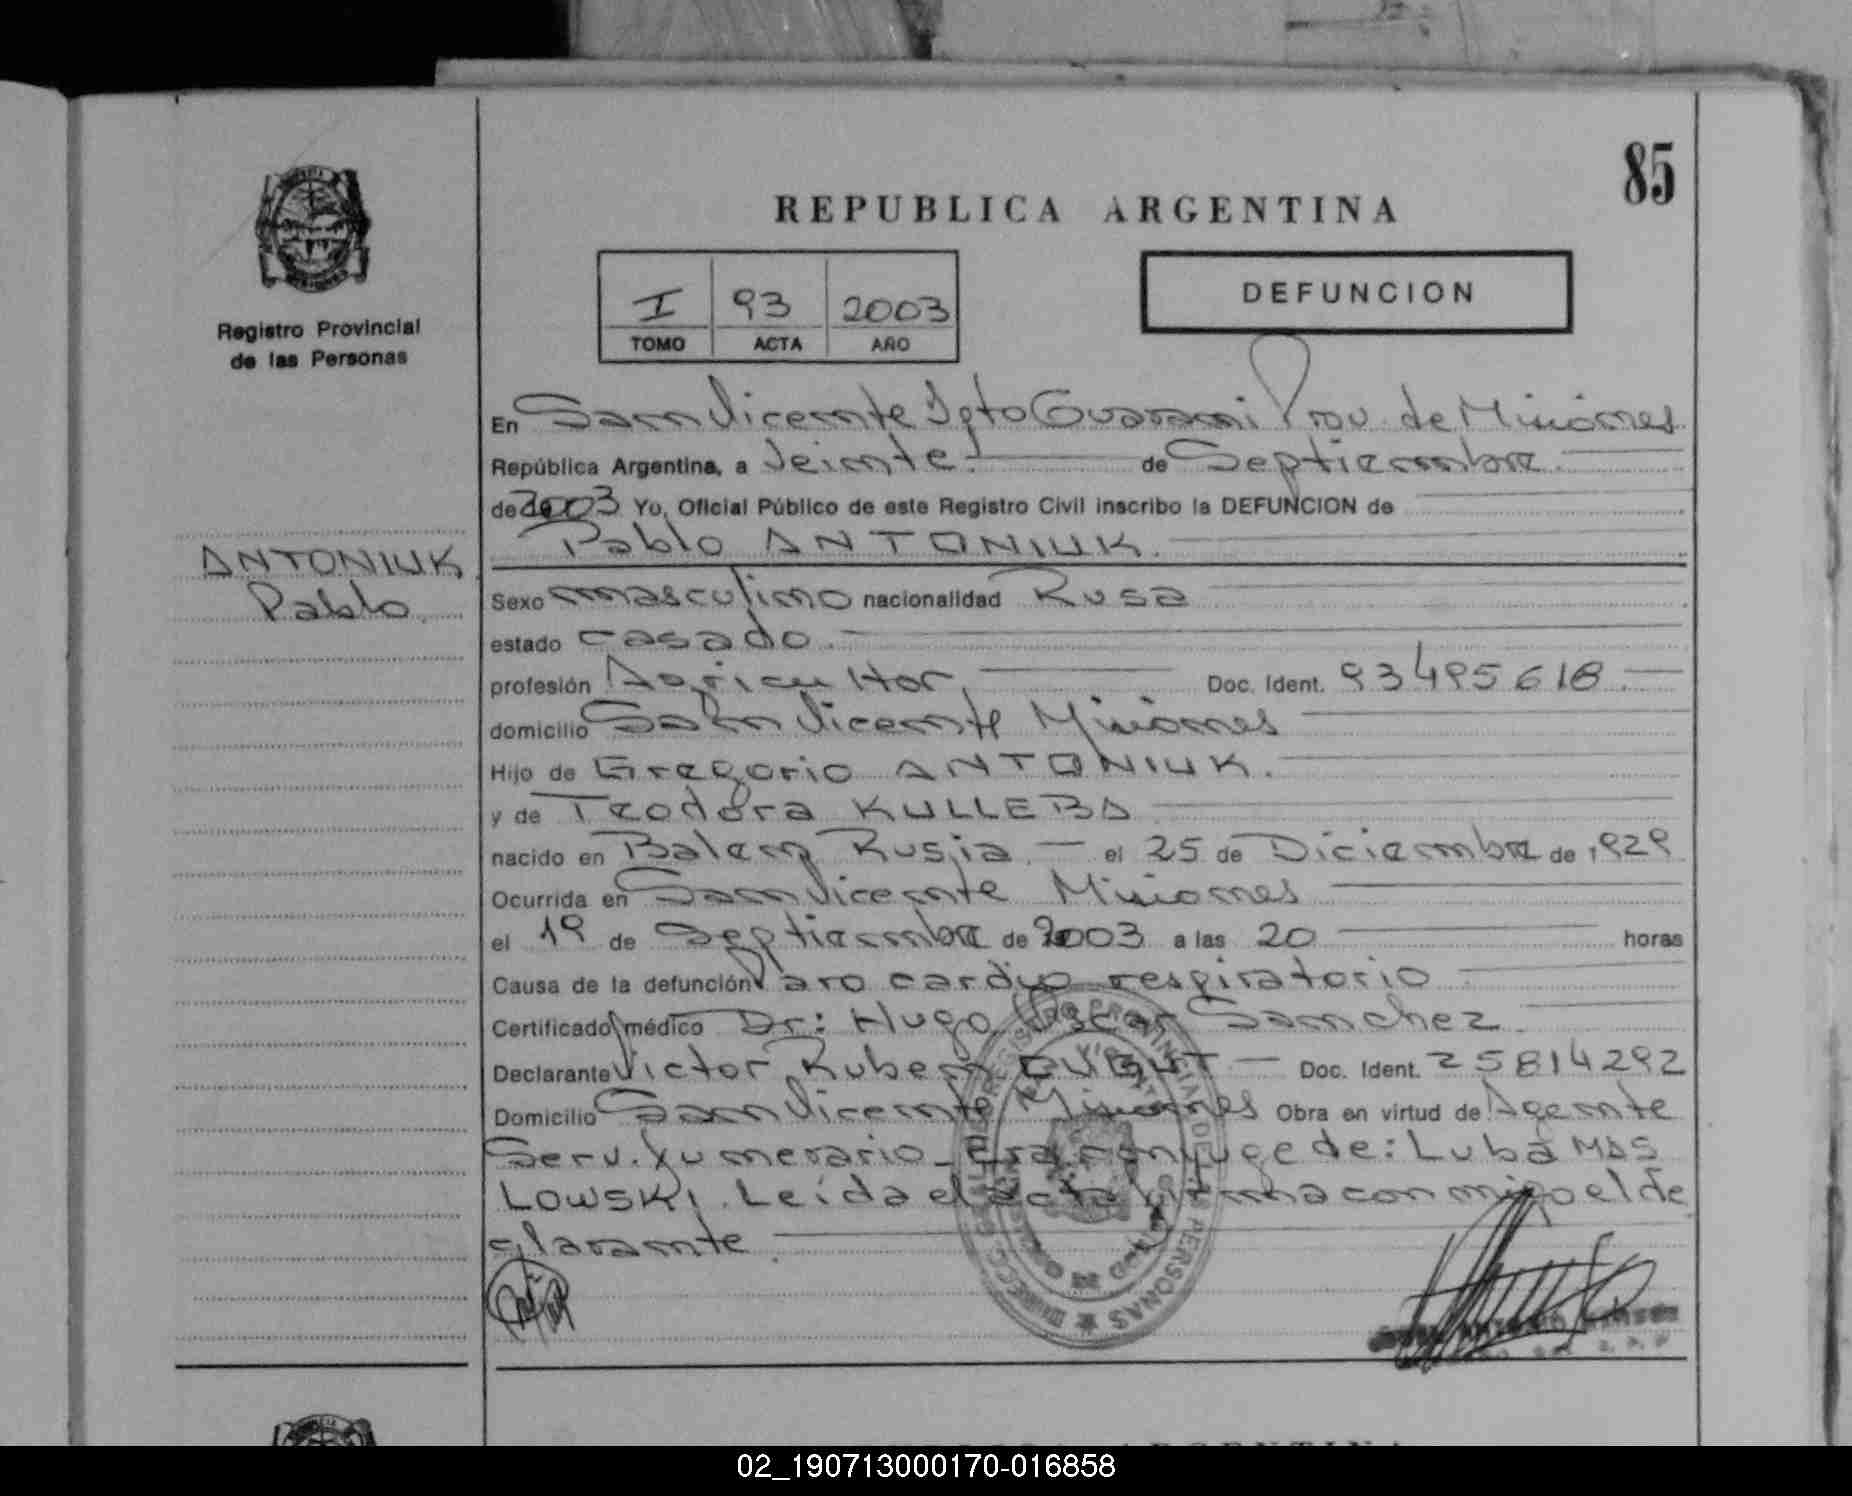 85
REPUBLICA ARGENTINA
I 93 2003
TOMO ACTA AÑO
DEFUNCION
Registro Provincial
de las Personas
ANTONIUK
Pablo
En San Vicente Dpto Guarani Prov. de Misiones
República Argentina, a Veinte. de Septiembre
de 2003 Yo, Oficial Público de este Registro Civil inscribo la DEFUNCION de
Pablo ANTONIUK.
Sexo masculino nacionalidad Rusa
estado casado.
profesión Agricultor, Doc. Ident. 93495618.
domicilio San Vicente Misiones
Hijo de Gregorio ANTONIUK.
y de Teodora KULLEBA
nacido en Balem Rusia. el 25 de Diciembre de 1929
Ocurrida en San Vicente Misiones
el 19 de Septiembre de 2003 a las 20 horas
Causa de la defunción Paro cardio respiratorio
Certificado médico Dr: Hugo Oscar Sanchez.
Declarante Victor Ruben Doc. Ident. 25814292
Domicilio San Vicente Misiones Obra en virtud de Agente
Serv. Fumerario_Era conyuge de: Luba MAS
LOWSKI. Leída el acta firma conmigo el de
clarante.
02_190713000170-016858